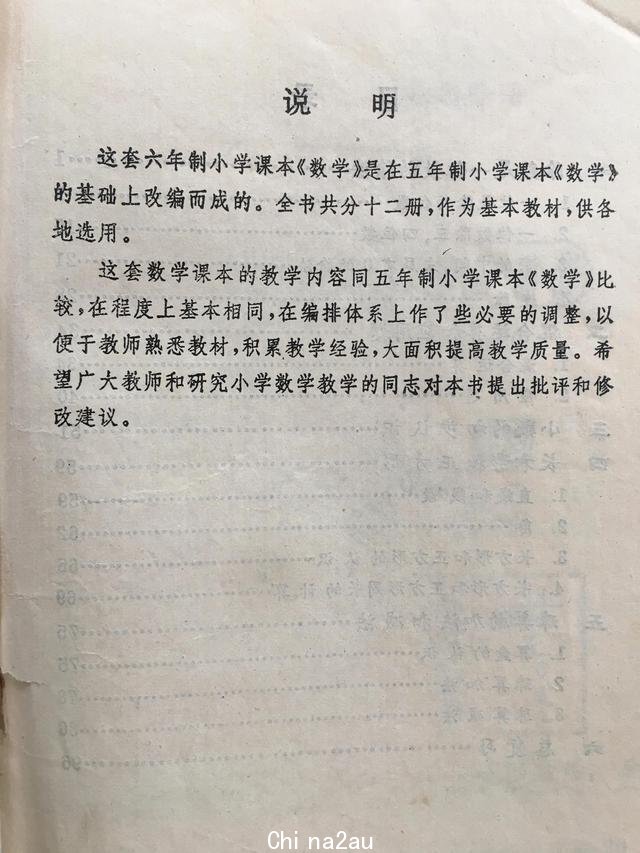 说 明
这套六年制小学课本《数学》是在五年制小学课本《数学》
的基础上改编而成的。全书共分十二册，作为基本教材，供各
地选用。
这套数学课本的教学内容同五年制小学课本《数学》比
较，在程度上基本相同，在编排体系上作了些必要的调整，以
便于教师熟悉教材，积累教学经验，大面积提高教学质量。希
望广大教师和研究小学数学教学的同志对本书提出批评和修
改建议。
Chi na2au